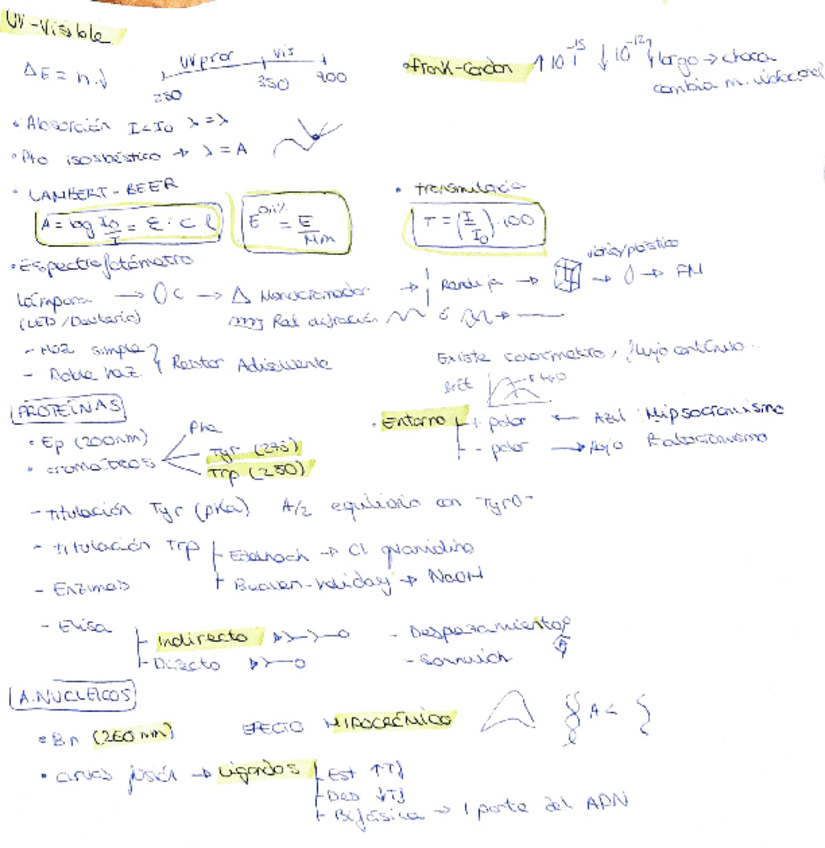 UV-Visible
ΔE = h.ν
UV pror vis
200 350 700
• Frank-Condon ↑10^-15 ↓10^-12 largo → choca
cambia m. vibracional
• Absorción I<I₀ λ=λ
• Pto isosbéstico → λ = A
• LAMBERT-BEER
A = log I₀/I = ε · c l
E^0,1% = ε/Mm
• transmitancia
T = (I/I₀) · 100
• Espectrofotómetro
lámpara → c → Δ Monocromador → Rendija → vidrio/plástico → → FM
(LED / Deuterio) Red difracción ó
- Haz simple
- Doble haz Restar A disolvente
Existe colorímetro, flujo continuo..
PROTEÍNAS
• Ep (200nm)
• aromáticos Phe
Tyr (275)
Trp (280)
• Entorno + polar ← Azul Hipsocromismo
- polar → Rojo Batocromismo
- titulación Tyr (pKa) A/2 equilibrio con TyrO⁻
- titulación Trp Edelhoch → Cl guanidino
Beaven-Holiday → NaOH
- Enzimas
- Elisa
Indirecto - Desplazamiento
Directo - Sandwich
A. NUCLEICOS
• B.n (260 nm) EFECTO HIPOCRÓMICO A <
• curvas fusión → Ligandos Est ↑Tf
Des ↓Tf
Bifásica → 1 parte del ADN